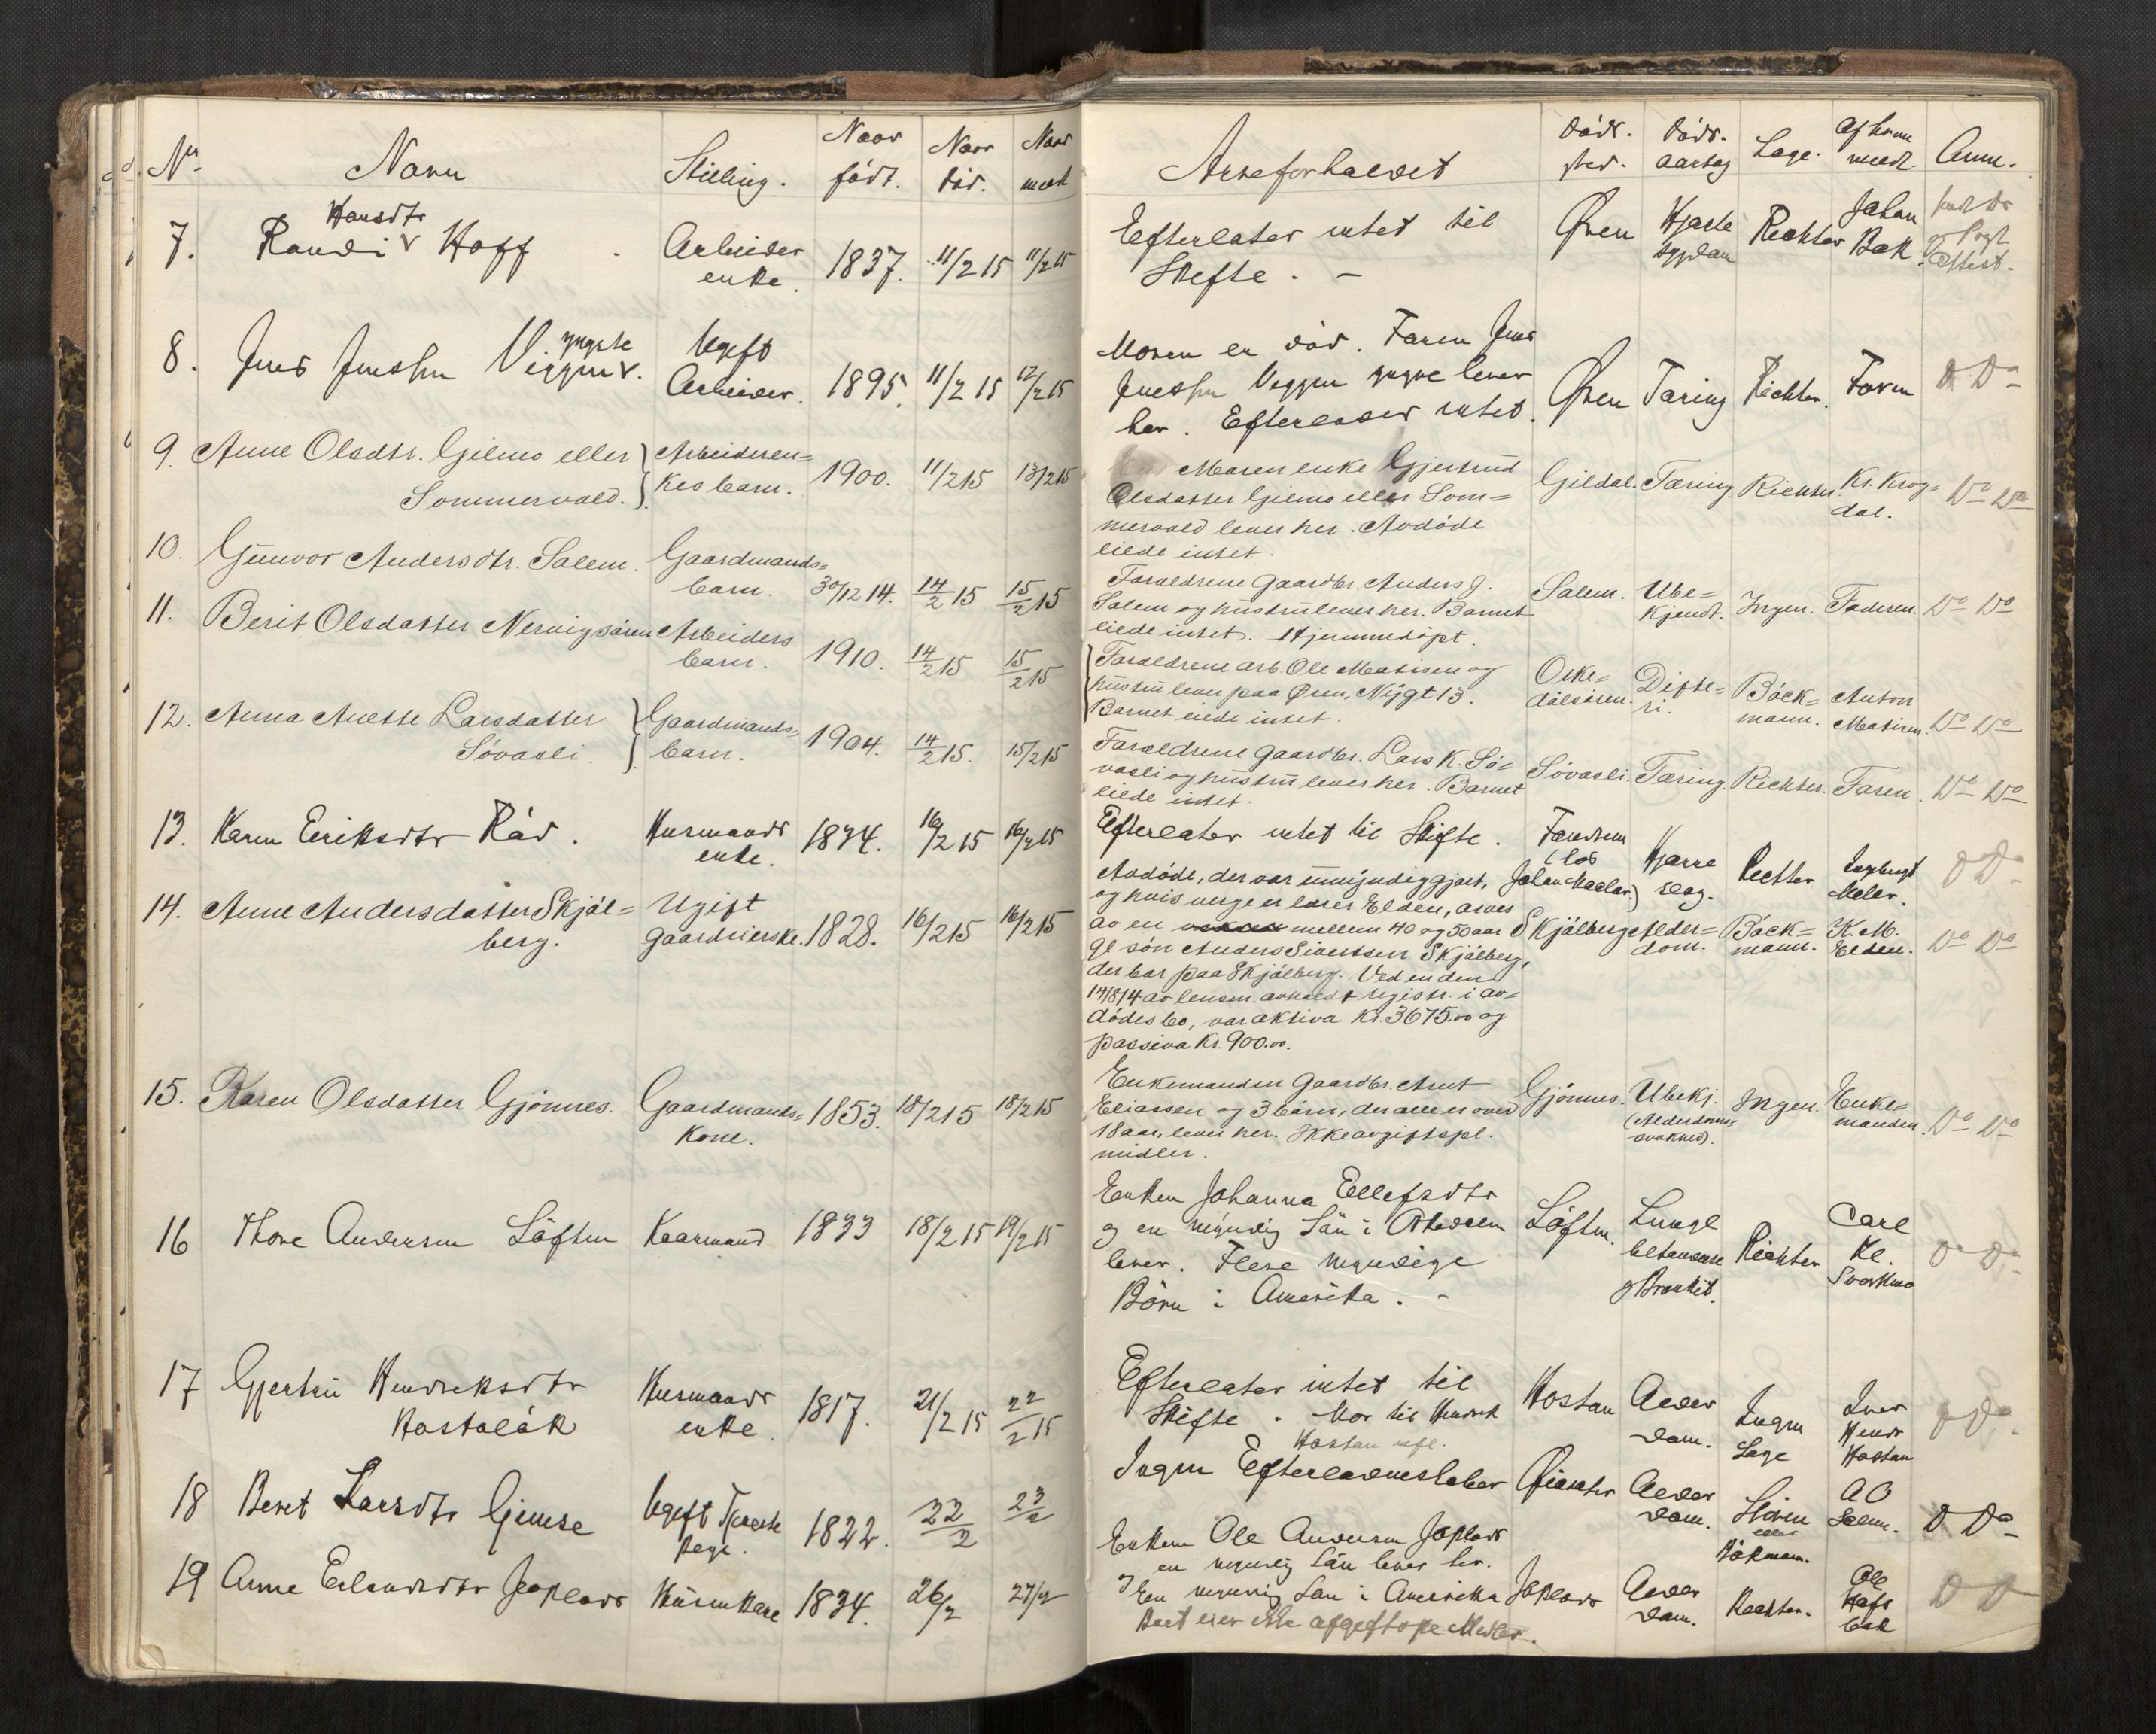 Nr. Navn Stilling. Naar født. Naar død. Naar meldt
7. Randi Hansdtr Hoff Arbeider enke. 1837. 11/2 15 11/2 15
8. Jens Jensen Viggen yngste Ugift Arbeider. 1895. 11/2 15 12/2 15
9. Anne Olsdtr. Gilmo eller Sommervold. Arbeideren=
kes barn. 1900. 11/2 15 13/2 15
10. Gunvor Andersdtr. Salem. Gaardmands=
barn. 30/12 14. 14/2 15 15/2 15
11. Berit Olsdatter Nervigsøren Arbeiders
barn. 1910. 14/2 15 15/2 15
12. Anna Anette Larsdatter
Søvasli. Gaardmands=
barn. 1904. 14/2 15. 15/2 15
13. Karen Eriksdtr Rød. Husmands
enke. 1834. 16/2 15 16/2 15
14. Anne Andersdatter Skjøl=
berg. Ugift
gaardeierske. 1828. 16/2 15 16/2 15
15. Karen Olsdatter Gjønnes. Gaardmands=
kone. 1853. 18/2 15 18/2 15
16 Thore Andersen Løften Kaarmand 1833 18/2 15 19/2 15
17 Gjertru Hendriksdtr
Husmands
enke. 1817. 21/2 15 22/2 15
18 Beret Larsdtr Gimse Ugift 1822. 22/2 23/2
19 Anne Erlandsdtr 1834. 26/2 27/2
Arveforholdet Døds.
sted. Døds.
aarsag Læge. Af hvem
meldt Anm.
Efterlater intet til
Skifte. - Øren Hjerte
sygdom Richter Johan
Bak
Moren er død. Faren Jens
Jensen Viggen yngre lever
her. Efterlader intet. Øren Tæring Richter. Faren Do
Moren enke Gjertrud
Olsdatter Gilmo eller Som=
mervold lever her. Avdøde
eiede intet. Gildal. Tæring. Richter. Kr. Krog=
dal. Do Do
Forældrene gaardbr. Anders J.
Salem og hustru lever her. Barnet
eiede intet. Hjemmedøpt. Salem. Ube=
kjendt. Ingen. Faderen. Do Do
Forældrene arb. Ole Matisen og
hustru lever paa Øren, Nygt 13.
Barnet eiede intet. Orke=
dalsøren. Difte=
ri. Bäck=
mann. Anton
Matisen. Do Do
Forældrene gaardbr. Lars K. Sø=
vasli og hustru lever her. Barnet
eiede intet. Søvasli. Tæring. Richter. Faren. Do Do
Efterlater intet til Skifte. Hjerne
slag. Richter Do
Avdøde, der var umyndiggjort,
og hvis verge er lærer Elden, arves
av en mellem 40 og 50 aar
gl søn Anders Sivertsen Skjølberg,
der bor paa Skjølberg. Ved en den
14/8 14 av lensm. avholdt registr. i av=
dødes bo, var aktiva Kr. 3675.00 og
passiva Kr. 900.00. Skjølberg Alder=
dom. Bäck=
mann. K. M.
Elden. Do Do
Enkemanden gaardbr. Arnt
Eliassen og 3 børn, der alle er over
18 aar, lever her. Ikke avgiftspl.
midler. Gjønnes. Ubekj.
(Alderdoms=
svakhed). Ingen. Enke=
manden. Do Do
Enken Johanna Ellefsdtr
og en myndig Søn i Orkedalen
lever. Flere myndige
Børn i Amerika. - Løften. Lunge
betændelse
og Bronkit. Richter Carl
Kl.
Svorkmo Do
Efterlater intet til
Skifte. Mor til Hendrik
Hostan Hostan Alder
dom. Ingen
Læge Iver
Hendr
Hostan Do
Ingen Alder
dom. eller
Bäkman. A O
Salem. Do
Enkem Ole Andersen
en myndig Søn lever her.
og En myndig Søn i Amerika
Boet eier ikke Midler. Alder
dom. Richter. Ole